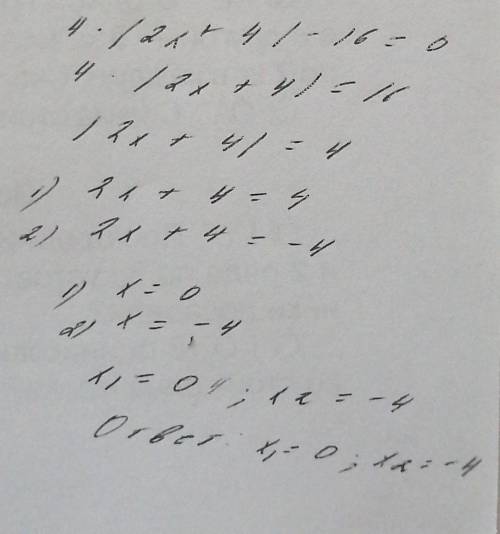 4 · |2x + 4| - 16 = 0
4 · |2x + 4| = 16
|2x + 4| = 4
1) 2x + 4 = 4
2) 2x + 4 = -4
1) x = 0
2) x = -4
x1 = 0 ; x2 = -4
Ответ: x1 = 0 ; x2 = -4